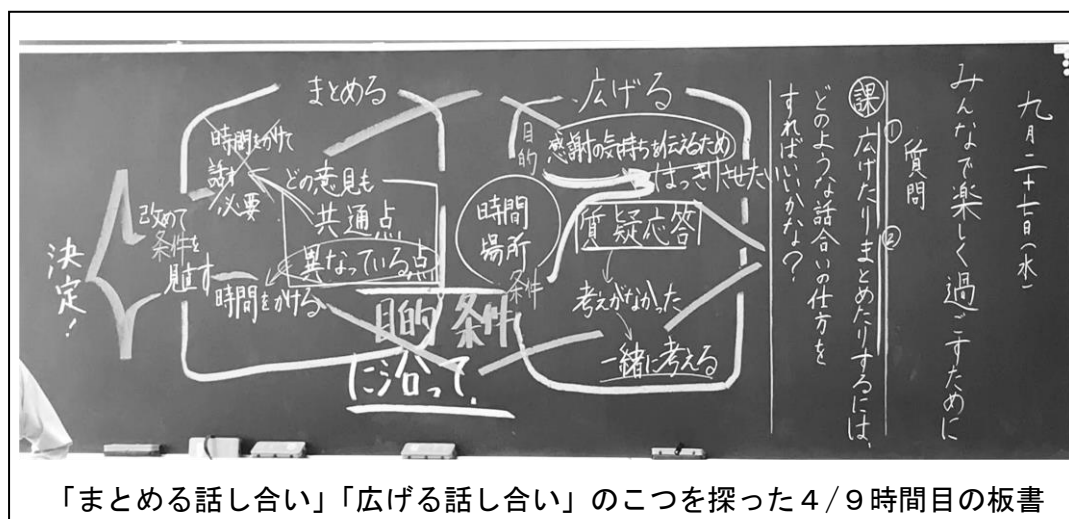 九月二十七日(水)
みんなで楽しく過ごすために
質問
課 ①広げたり②まとめたりするには、
どのような話合いの仕方を
すればいいかな?
広げる
目的
感謝の気持ちを伝えるため
はっきりさせたい
時間
場所
条件
質疑応答
考えがなかった
一緒に考える
まとめる
時間をかけて
話す
必要
どの意見も
共通点
異なっている点
時間をかける
目的 条件
に沿って、
改めて
条件を
見直す
決定!
「まとめる話し合い」「広げる話し合い」のこつを探った4/9時間目の板書